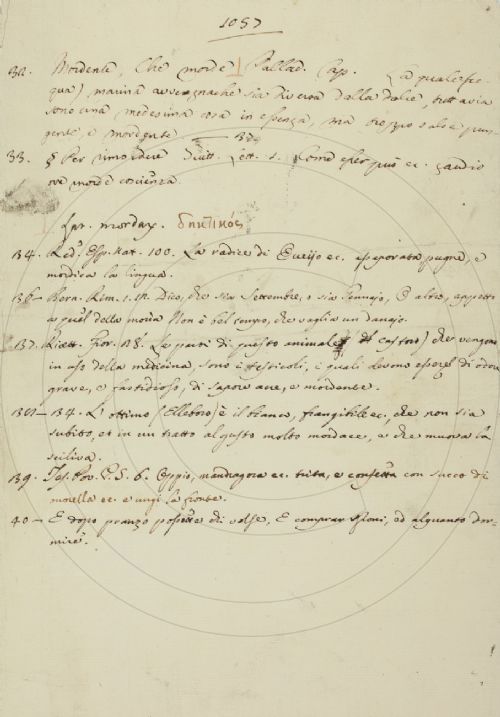 1057
132. Mordente, Che morde Pallad. Cap. La quale (se-
qua) marina avvegnachè sia diversa dalla dolce, tuttavia
sono una medesima cosa in essenza, ma troppo salsa pun-
gente, e mordente
133. § Per rimordere Guitt. Lett. 1. Come esser può ec. gaudio
ove morde coscienza
Lat. mordax. δηκτικός
134. Red. Esp. Nat. 100. La radice di ec. e
mordica la lingua.
136 — Bern. Rim. 1. Dico, che sia Settembre, o sia Gennajo, O altro, appetto
a quel della moria Non è bel tempo, che vaglia un danajo.
137. Ricett. Fior. Le parti di questo animale (il castoro) che vengono
in uso della medicina, sono i testicoli, i quali devono esser di odore
grave, e fastidioso, di sapore acre, e mordente.
138 — 134. L'ottimo (Elleboro) è il bianco, frangibile ec., che non sia
subito, et in un tratto al gusto molto mordace, e che muova la
sciliva.
139. Tes. Pov. P. S. 6. Oppio, mandragora ec. trita, e confetta con succo di
morella ec. e ungi la fronte.
40 — E dopo pranzo ed alquanto dor-
mire.